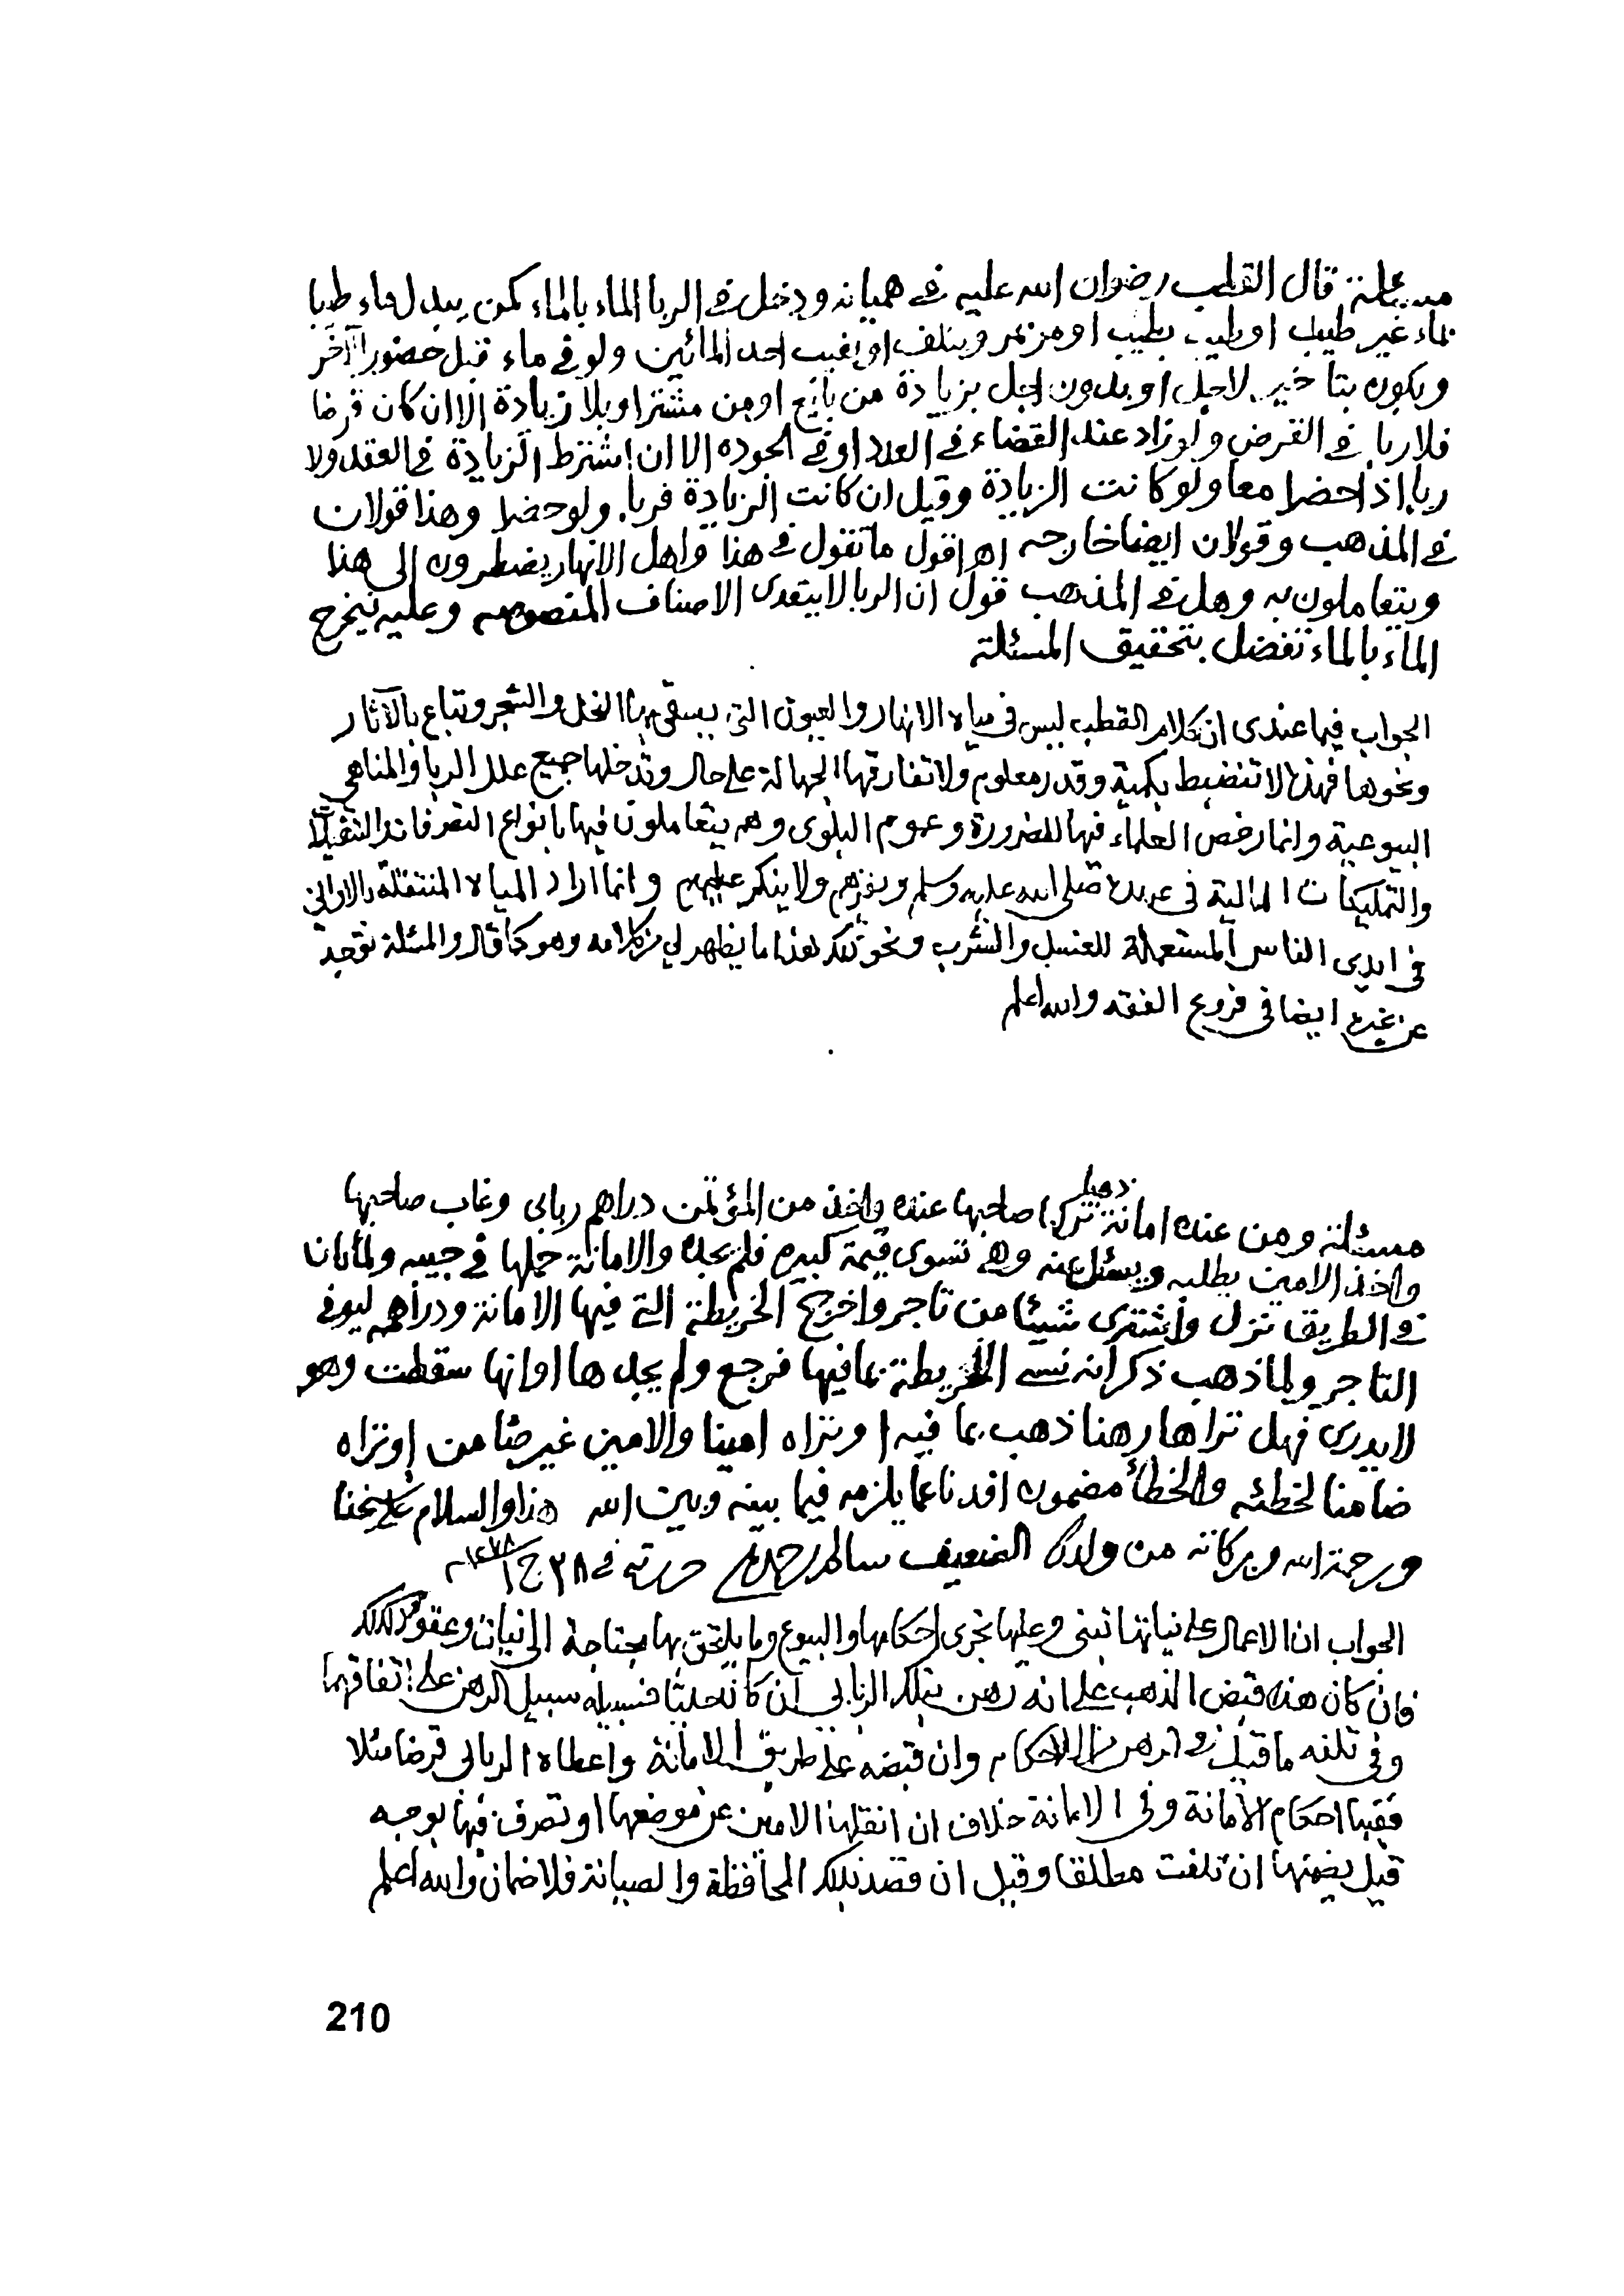 مسئلة قال القطب رضوان الله عليه في هميانه ودخل في الربا الماء بالماء كمن يبدل ماء طيبا
بماء غير طيب او طيب بطيب او مر بمر ويتلف او يغيب احد المائين ولو في ماء قبل حضور الآخر
ويكون بتأخير لاجل او بدون اجل بزيادة من بائع او من مشتر او بلا زيادة الا ان كان قرضا
فلا ربا في القرض ولو زاد عند القضاء في العدد او في الجوده الا ان اشترط الزيادة في العقد ولا
ربا اذا حضرا معا ولو كانت الزيادة وقيل ان كانت الزيادة فربا ولو حضرا وهذا قولان
في المذهب وقولان ايضا خارجه اهـ اقول ما تقول في هذا واهل الانهار يضطرون الى هذا
ويتعاملون به وهل في المذهب قول ان الربا لا يتعدى الاصناف المنصوصه وعليه يتخرج
الماء بالماء تفضل بتحقيق المسئلة
الجواب فيما عندي ان كلام القطب ليس في مياه الانهار والعيون التي يسقى بها النخل والشجر وتباع بالآثار
ونحوها فهذا لا تنضبط بكمية وقدر معلوم ولا تفارقها الجهالة على حال وتدخلها جميع علل الربا والمناهي
البيوعية وانما رخص العلماء فيها للضرورة وعموم البلوى وهم يتعاملون فيها بانواع التصرفات والتنقيلات
والتمليكات المالية في عهده صلى الله عليه وسلم ويقرهم ولا ينكر عليهم وانما اراد المياه المنتقلة بالاواني
في ايدي الناس المستعملة للغسل والشرب ونحو ذلك هذا ما يظهر لي من كلامه وهو كما قال والمسئلة توجد
عن غيره ايضا في فروع الفقه والله اعلم
مسئلة ومن عنده امانة ذهبا تركها صاحبها عنده واخذ من المؤتمن دراهم ربابى وغاب صاحبها
واخذ الامين يطلبه ويسئل عنه وهي تسوى قيمة كبيره فلم يجده والامانة حملها في جيبه ولما بان
في الطريق نزل واشترى شيئا من تاجر واخرج الخريطة التي فيها الامانة ودراهمه ليوفي
التاجر ولما ذهب ذكر انه نسي الخريطة بما فيها فرجع ولم يجدها او انها سقطت وهو
لا يدري فهل تراها رهنا ذهب بما فيه او تراه امينا والامين غير ضامن او تراه
ضامنا لخطئه والخطأ مضمون افدنا عما يلزمه فيما بينه وبين الله هذا والسلام على شيخنا
ورحمة الله وبركاته من ولدك الضعيف سالم حرر ته في ٢٨ ج١
الجواب ان الاعمال على نياتها تبنى وعليها تجري احكامها والبيوع وما يلتحق بها محتاجة الى نيات وعقود كذلك
فان كان هذا قبض الذهب على انه رهن بتلك الربابي ان كانت حليا فسبيله سبيل الرهن على اتفاقهما
وفي تلفه ما قيل في الرهن من الاحكام وان قبضه على طريق الامانة واعطاه الربابي قرضا مثلا
ففيها احكام الامانة وفي الامانة خلاف ان انقلها الامين عن موضعها او تصرف فيها بوجه
قيل يضمنها ان تلفت مطلقا وقيل ان قصد بذلك المحافظة والصيانة فلا ضمان والله اعلم
210